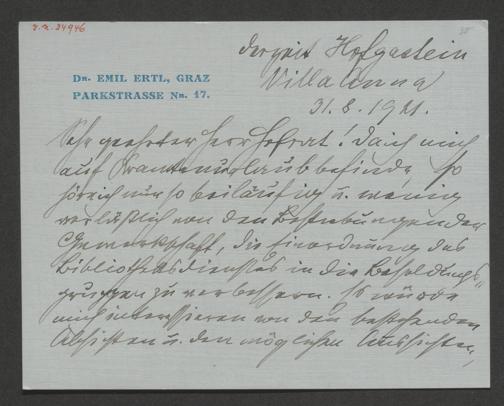 J.N. 24946
derzeit Hofgastein
Villa Anna
DR. EMIL ERTL, GRAZ
PARKSTRASSE NR. 17.
31. 8. 1921.
Sehr geehrter Herr Hofrat! Da ich mich
auf Krankenurlaub befinde, so
hör ich nur so beiläufig u. wenig
verläßlich von den Bestrebungen der
Gewerkschaft, die Einordnung des
Bibliotheksdienstes in die Besoldungs-
gruppen zu verbessern. Es würde
mich interessieren von den bestehenden
Absichten u. den möglichen Aussichten,